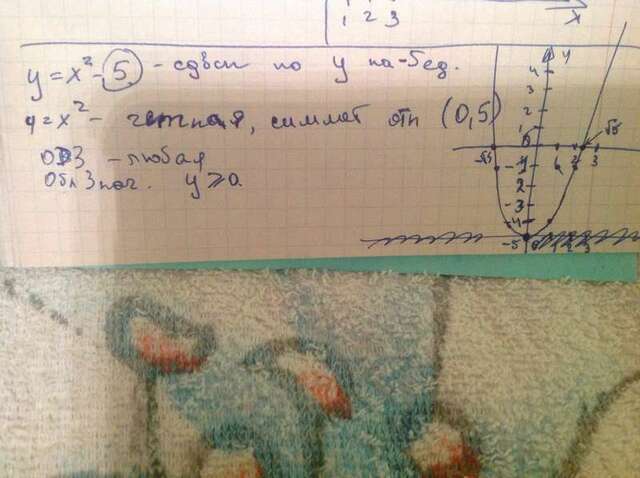 1 2 3 x
y = x² - 5 - сдвиг по y на -5 ед.
y = x² - четная, симмет отн (0,5)
ОДЗ - любая
Обл знач. y ⩾ 0
y
4
3
2
1
0
√5
√5
1 2 3
-1
-2
-3
-4
-5
1 2 3